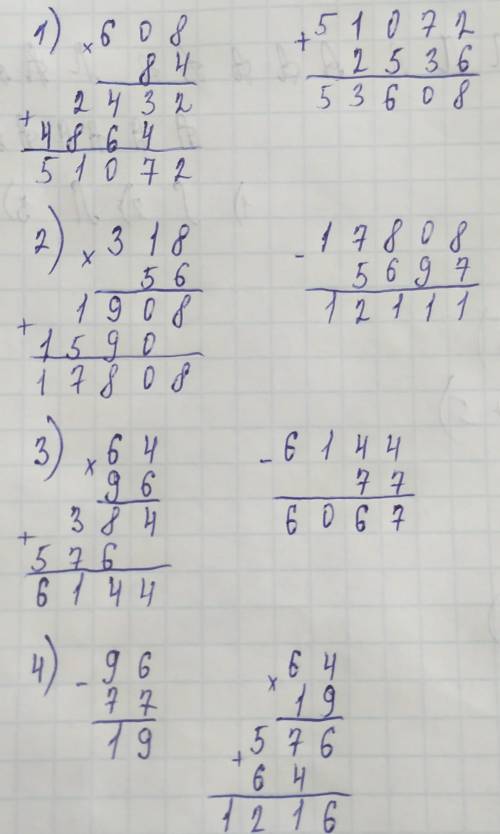 1) × 608
84
2432
+ 4864
51072
+ 51072
2536
53608
2) × 318
56
1908
+ 1590
17808
- 17808
5697
12111
3) × 64
96
384
+ 576
6144
- 6144
77
6067
4) - 96
77
19
× 64
19
576
+ 64
1216